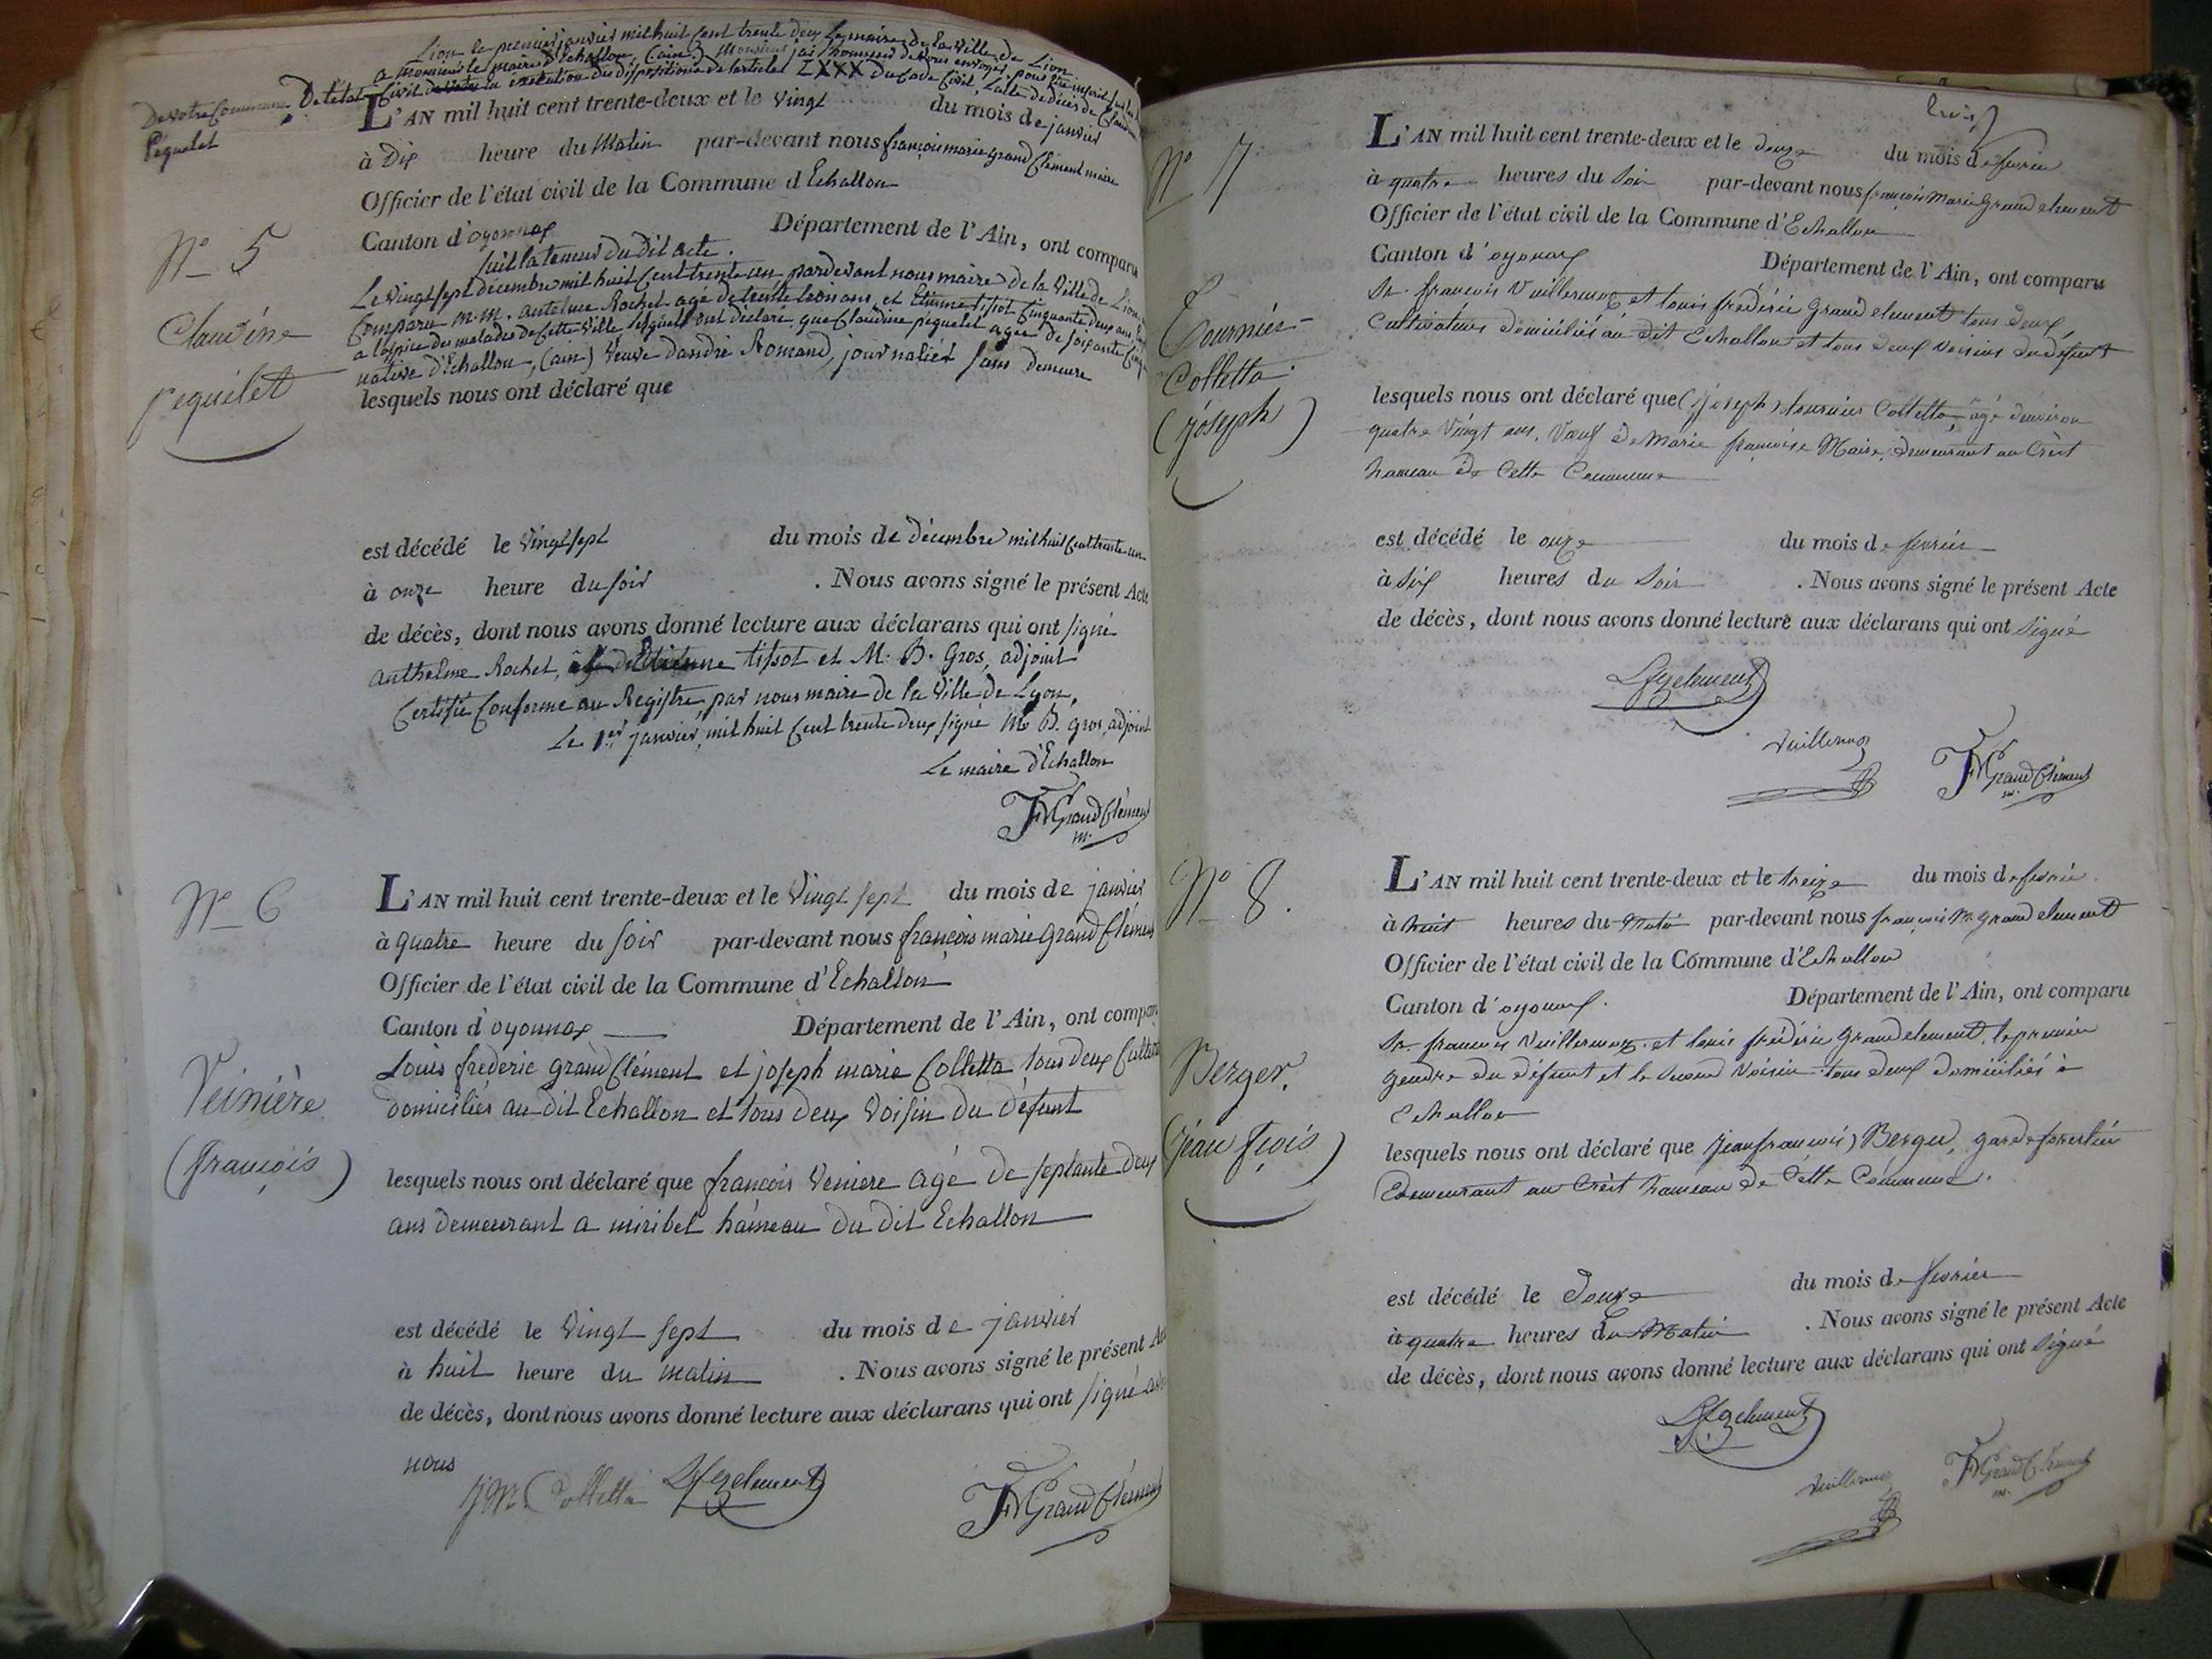 Lion le premier janvier mil huit cent trente deux Le maire de la ville de Lion
a monsieur le maire d'Echallon, (ain) Monsieur j'ai l'honneur de vous envoyer, pour être inscrit sur les
De votre Commune De l'état Civil en exécution des dispositions de l'article LXXX du Code Civil, l'acte de décès de Claudine
Pequelet
L'AN mil huit cent trente-deux et le vingt du mois de janvier
à Dix heure du Matin par-devant nous françois marie grand Clement maire
Officier de l'état civil de la Commune d'Echallon
N° 5
Canton d'oyonnax Département de l'Ain, ont comparu
suit la teneur du dit acte.
Le vingt sept décembre mil huit cent trente un pardevant nous maire de la ville de Lion
Claudine
comparu M.M. antelme Rochet agé de trente trois ans, et Etienne tissot cinquante deux ans
a l'hospice des malades de cette ville lesquels ont déclaré que Claudine pequelet agée de soixante cinq
pequelet
native d'Echallon, (ain) veuve d'andré Romand, journalier sans demeure
lesquels nous ont déclaré que
est décédé le vingt sept du mois de décembre mil huit cent trente un
à onze heure du soir . Nous avons signé le présent Acte
de décès, dont nous avons donné lecture aux déclarans qui ont signé
anthelme Rochet, Etienne tissot et M. B. Gros, adjoint
Certifié Conforme au Registre, par nous maire de la ville de Lyon,
Le 1er janvier, mil huit cent trente deux signé M. B. gros, adjoint
Le maire d'Echallon
FM Grand Clément
m.
N° 6
L'AN mil huit cent trente-deux et le vingt sept du mois de janvier
à quatre heure du soir par-devant nous françois marie grand Clément
Officier de l'état civil de la Commune d'Echallon
Canton d'oyonnax Département de l'Ain, ont comparu
Veinière
Louis frederic grand Clément et joseph marie Colletta tous deux
domiciliés au dit Echallon et tous deux voisin du défunt
(françois)
lesquels nous ont déclaré que françois Veniere agé de septante deux
ans demeurant a miribel hameau du dit Echallon
est décédé le vingt sept du mois de janvier
à huit heure du matin . Nous avons signé le présent Acte
de décès, dont nous avons donné lecture aux déclarans qui ont signé avec
nous
J M Colletta Lfgclement FM Grand Clément
trois
N° 7
L'AN mil huit cent trente-deux et le douze du mois de fevrier
à quatre heures du soir par-devant nous françois Marie Grand clement
Officier de l'état civil de la Commune d'Echallon
Canton d'oyonnax Département de l'Ain, ont comparu
Tournier-
Sr. françois Vuillermoz et louis frédéric Grand clement tous deux
Cultivateurs domiciliés au dit Echallon et tous deux voisins du défunt
Colletta
(joseph)
lesquels nous ont déclaré que (joseph) tournier Colletta, âgé d'environ
quatre vingt ans, Veuf de Marie françoise Maire, demeurant au Crêt
hameau de Cette Commune
est décédé le onze du mois de fevrier
à six heures du soir . Nous avons signé le présent Acte
de décès, dont nous avons donné lecture aux déclarans qui ont signé
Lfgclement
Vuillermoz
FM Grand Clément
m.
N° 8.
L'AN mil huit cent trente-deux et le treize du mois de fevrier
à huit heures du matin par-devant nous françois M. Grand clement
Officier de l'état civil de la Commune d'Echallon
Canton d'oyonnax. Département de l'Ain, ont comparu
Berger.
Sr. françois Vuillermoz et louis frédéric Grandclement, le premier
gendre du défunt et le second voisin tous deux domiciliés à
Echallon
(jean fçois)
lesquels nous ont déclaré que jean françois) Berger, garde forestier
demeurant au Crêt hameau de Cette Commune.
est décédé le Douze du mois de fevrier
à quatre heures du Matin . Nous avons signé le présent Acte
de décès, dont nous avons donné lecture aux déclarans qui ont signé
Lfgclement
Vuillermoz
FM Grand Clément
m.